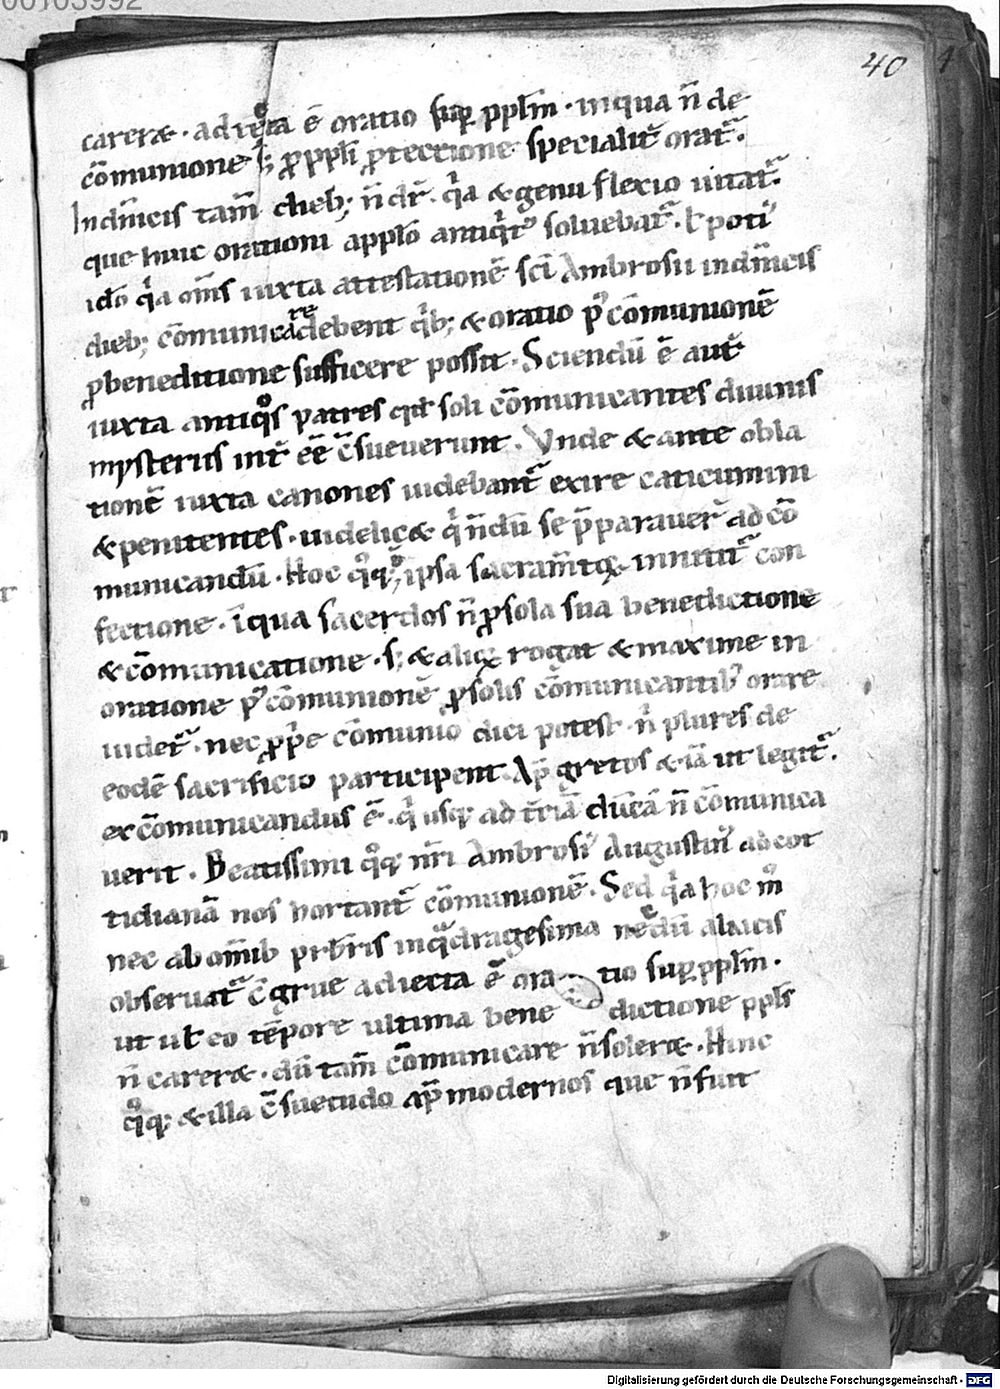 00103992
40
careræ · adiecta ē oratio sup ppl̄m · inqua ñ de
cōmunione s; ꝓ ppl̄i ꝓtectione specialit̄ orat᷑.
Indn̄icis tam̄ dieb; ñ dr̄ · q̄a & genu flexio uitat᷑.
que huic orationi appl̄o antiq̄t᷑ soluebat᷑. ł poti᷒
idō q̄a om̄s iuxta attestationē sc̄i Ambrosii indn̄icis
dieb; cōmunicare debent q̄b; & oratio p᷒ cōmunionē
ꝓ beneditione sufficere possit · Sciendū ē aut̄
iuxta antiqos patres qđ soli cōmunicantes diuinis
mysteriis int̄ eē c̄sueuerunt · Vnde & ante obla
tionē iuxta canones iudebant᷑ exire caticumini
& penitentes · uidelic& q̄ ñdū se p̄parauer̄ ad cō
municandū · Hoc q̊q; ipsa sacram̄toꝝ innuit᷑ con
fectione · īqua sacerdos ñ ꝓ sola sua benedictione
& cōmunicatione · s; & alioꝝ rogat & maxime in
oratione p᷒ cōmunionē ꝓ solis cōmunicantib᷒ orare
uidet᷑ · nec ꝓp̄e cōmunio dici potest · n̄ plures de
eodē sacrificio participent · Ap̄ grecos & iā ut legit᷑.
excōmunicandus ē · q̄ usq; ad t̄ciā dn̄icā ñ cōmunica
uerit · Beatissimi q̊q; nr̄i Ambrosi᷒ Augustin᷒ ad cot
tidianā nos hortant᷑ cōmunionē · Sed q̄a hoc m̊
nec ab om̄ib prb̄ris inq̄dragesima necdū alaicis
obseruat᷑ c̄grue adiecta ē ora tio sup ppl̄m ·
ut uł eo tēpore ultima bene dictione ppl̄s
ñ careræ · dū tam̄ cōmunicare ñ soleræ · Hinc
q̊q; & illa c̄suetudo ap̄ modernos que ñ fuit
Digitalisierung gefördert durch die Deutsche Forschungsgemeinschaft - DFG